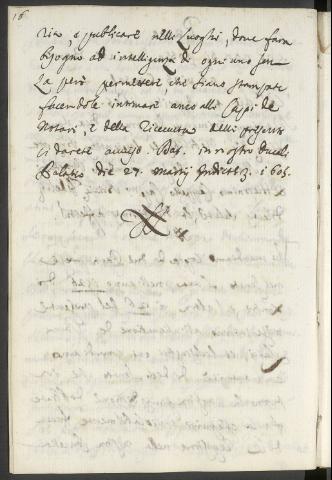 16
ria, e publicare nelli luoghi, dove farà
bisogno ad intelligenza di ogni uno sen
za però permettere che siano stampate
facendole intimare anco alli Capi de
Notari, e della riceuuta delli presenti
ci darete auuiso. Dat. in nostro Ducali
Palatio die 27. Martij Indict.e 3. 1605.